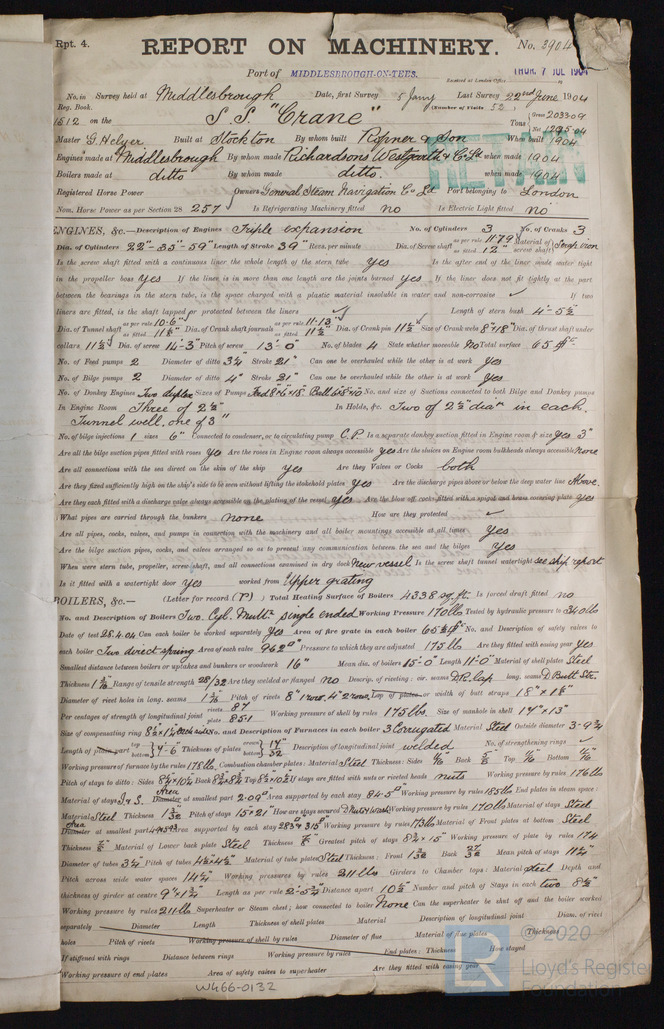 Rpt. 4. REPORT ON MACHINERY. No. 3904
Port of MIDDLESBROUGH-ON-TEES. THUR. 7 JUL 1904
Received at London Office
No. in Survey held at Middlesbrough Date, first Survey 5 Jany Last Survey 22nd June 1904
Reg. Book. (Number of Visits 52)
1512 on the S.S. "Crane" Tons Gross 2033.09 Net
Master G. Helyer Built at Stockton By whom built Ropner & Son When built 1904
Engines made at Middlesbrough By whom made Richardsons Westgarth & Co Ld when made 1904
Boilers made at ditto By whom made ditto. when made 1904
Registered Horse Power Owners General Steam Navigation Co Ld Port belonging to London
Nom. Horse Power as per Section 28 257 Is Refrigerating Machinery fitted no Is Electric Light fitted no
RETAIN
ENGINES, &c.—Description of Engines Triple expansion No. of Cylinders 3 No. of Cranks 3
Dia. of Cylinders 22"-35"-59" Length of Stroke 39" Revs. per minute Dia. of Screw shaft as per rule 11.79 as fitted 12" Material of screw shaft Scrap iron
Is the screw shaft fitted with a continuous liner the whole length of the stern tube yes Is the after end of the liner made water tight
in the propeller boss yes If the liner is in more than one length are the joints burned yes If the liner does not fit tightly at the part
between the bearings in the stern tube, is the space charged with a plastic material insoluble in water and non-corrosive ✓ If two
liners are fitted, is the shaft lapped or protected between the liners ✓ Length of stern bush 4"-5½
Dia. of Tunnel shaft as per rule 10.6" as fitted 11⅛" Dia. of Crank shaft journals as per rule 11.13 as fitted 11½ Dia. of Crank pin 11½ Size of Crank webs 8"×18" Dia. of thrust shaft under
collars 11½ Dia. of screw 14'-3" Pitch of screw 13'-0" No. of blades 4 State whether moveable No Total surface 65 ft²
No. of Feed pumps 2 Diameter of ditto 3¼" Stroke 21" Can one be overhauled while the other is at work yes
No. of Bilge pumps 2 Diameter of ditto 4" Stroke 21" Can one be overhauled while the other is at work yes
No. of Donkey Engines Two duplex Sizes of Pumps No. and size of Suctions connected to both Bilge and Donkey pumps
In Engine Room Three of 2½" In Holds, &c. Two of 2½" dia. in each.
Tunnel well, one of 3"
No. of bilge injections 1 sizes 6" Connected to condenser, or to circulating pump C.P. Is a separate donkey suction fitted in Engine room & size yes 3"
Are all the bilge suction pipes fitted with roses yes Are the roses in Engine room always accessible yes Are the sluices on Engine room bulkheads always accessible none
Are all connections with the sea direct on the skin of the ship yes Are they Valves or Cocks both
Are they fixed sufficiently high on the ship's side to be seen without lifting the stokehold plates yes Are the discharge pipes above or below the deep water line Above.
Are they each fitted with a discharge valve always accessible on the plating of the vessel yes Are the blow off cocks fitted with a spigot and brass covering plate yes
What pipes are carried through the bunkers none How are they protected ✓
Are all pipes, cocks, valves, and pumps in connection with the machinery and all boiler mountings accessible at all times yes
Are the bilge suction pipes, cocks, and valves arranged so as to prevent any communication between the sea and the bilges yes
When were stern tube, propeller, screw shaft, and all connections examined in dry dock New vessel Is the screw shaft tunnel watertight see ship report
Is it fitted with a watertight door yes worked from Upper grating
BOILERS, &c.— (Letter for record (r)) Total Heating Surface of Boilers 4338 sq. ft. Is forced draft fitted no
No. and Description of Boilers Two. Cyl. Multr. single ended Working Pressure 170 lbs Tested by hydraulic pressure to 340 lbs
Date of test 28.4.04 Can each boiler be worked separately yes Area of fire grate in each boiler No. and Description of safety valves to
each boiler Two direct spring Area of each valve 9.62" Pressure to which they are adjusted 175 lbs Are they fitted with easing gear yes
Smallest distance between boilers or uptakes and bunkers or woodwork 16" Mean dia. of boilers 15'-0" Length 11'-0" Material of shell plates Steel
Thickness Range of tensile strength 28/32 Are they welded or flanged no Descrip. of riveting: cir. seams D.R. lap long. seams D. Butt Str.
Diameter of rivet holes in long. seams Pitch of rivets Lap of plates or width of butt straps
Per centages of strength of longitudinal joint rivets 87 plate 85.1 Working pressure of shell by rules 175 lbs. Size of manhole in shell 17"×13"
Size of compensating ring No. and Description of Furnaces in each boiler 3 Corrugated Material Steel Outside diameter 3'-9¾
Length of plain part top bottom Thickness of plates crown bottom 17/32 Description of longitudinal joint welded No. of strengthening rings ✓
Working pressure of furnace by the rules 178 lbs. Combustion chamber plates: Material Steel Thickness: Sides Back Top Bottom
Pitch of stays to ditto: Sides Back Top If stays are fitted with nuts or riveted heads nuts Working pressure by rules 176 lbs
Material of stays I & S. Area Diameter at smallest part 2.09" Area supported by each stay 84.5" Working pressure by rules 185 lbs End plates in steam space:
Material Steel Thickness Pitch of stays 15×21" How are stays secured D Nuts & Wash Working pressure by rules 170 lbs Material of stays Steel
Area Diameter at smallest part Area supported by each stay Working pressure by rules Material of Front plates at bottom Steel
Thickness Material of Lower back plate Steel Thickness Greatest pitch of stays 8¾×15" Working pressure of plate by rules 174
Diameter of tubes 3¼" Pitch of tubes 4½×4½" Material of tube plates Steel Thickness: Front Back Mean pitch of stays 11¼"
Pitch across wide water spaces 14½" Working pressures by rules 211 lbs Girders to Chamber tops: Material steel Depth and
thickness of girder at centre 9"×1¾" Length as per rule 2'-5¾ Distance apart 10½" Number and pitch of Stays in each two 8½"
Working pressure by rules 211 lbs Superheater or Steam chest; how connected to boiler None Can the superheater be shut off and the boiler worked
separately Diameter Length Thickness of shell plates Material Description of longitudinal joint Diam. of rivet
holes Pitch of rivets Working pressure of shell by rules Diameter of flue Material of flue plates Thickness
If stiffened with rings Distance between rings Working pressure by rules End plates: Thickness How stayed
Working pressure of end plates Area of safety valves to superheater Are they fitted with easing gear
W466-0132
© 2020
Lloyd's Register
Foundation
LR